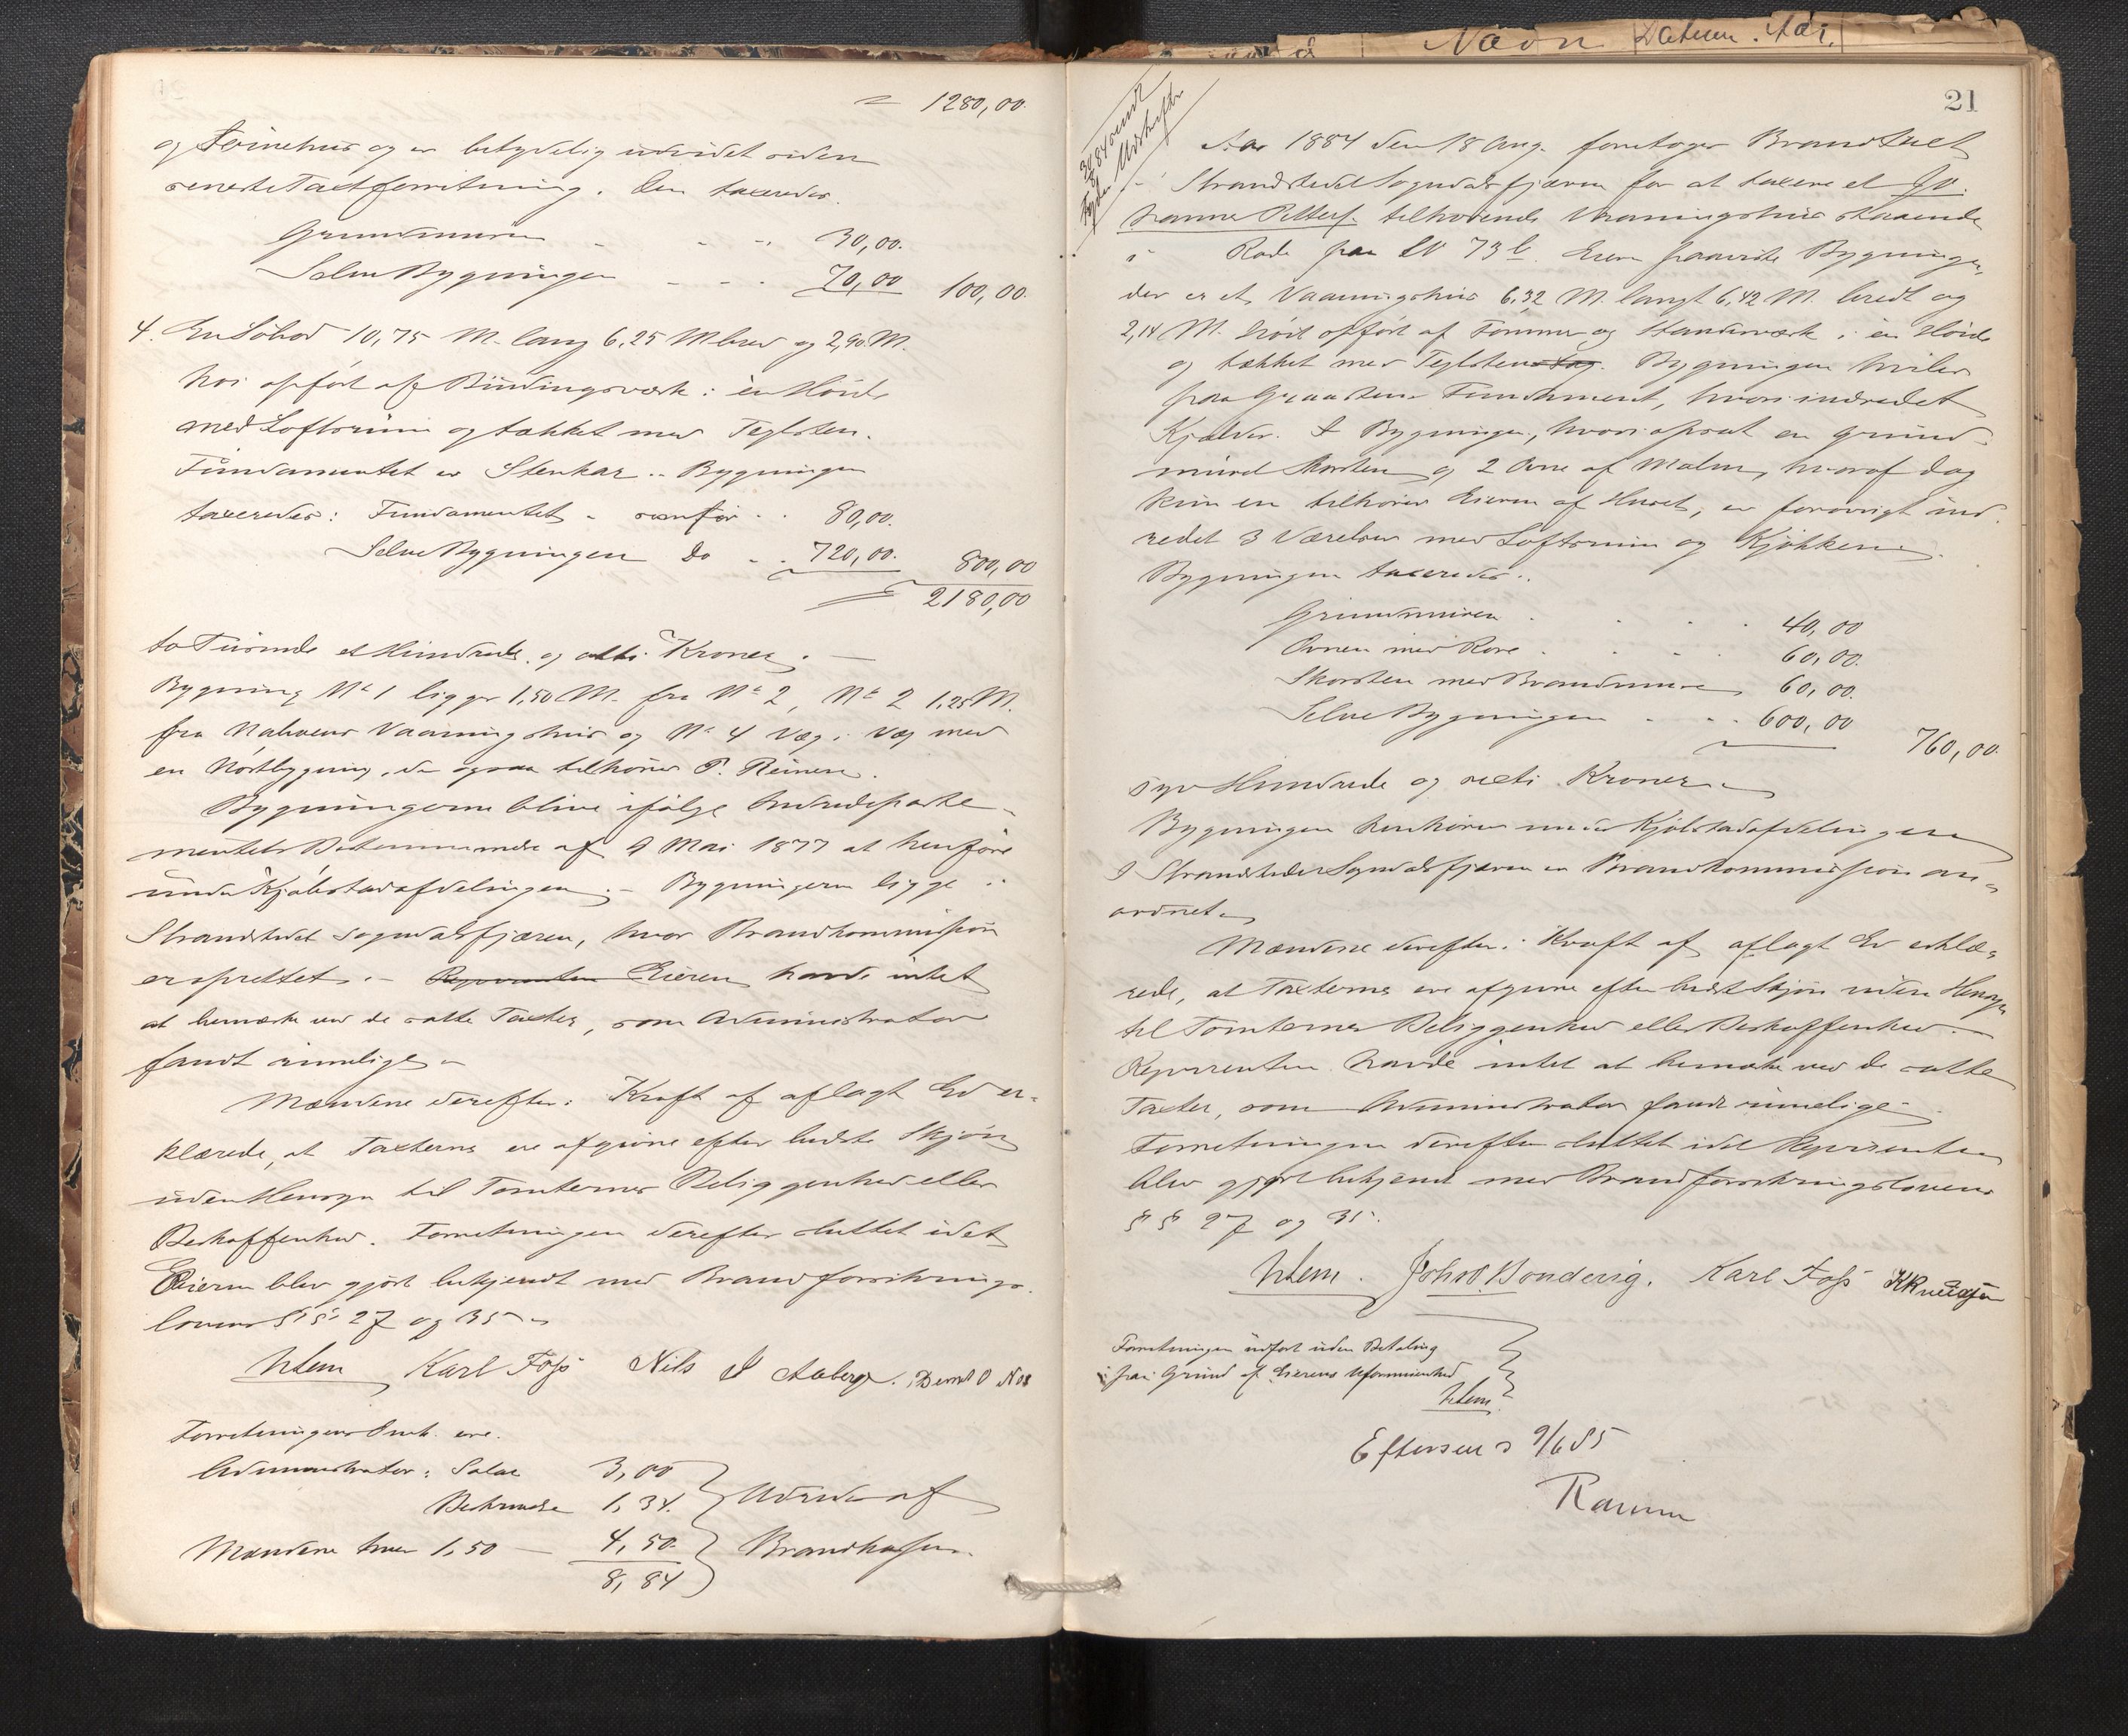 = 1280,00.
og Torvehus og er betydelig udvidet siden
seneste Taxtforretning. Den taxeredes.
Grundmuren - - - 30,00.
Selve Bygningen - - - 70,00 100,00.
4. En Søbod 10,75 M. lang 6,25 M bred og 2,90 M.
høi opført af Bindingsværk i èn Høide
med Loftsrum og tækket med Teglsten.
Fundamentet er Stenkar. Bygningen
taxeredes: Fundamentet - 80,00.
Selve Bygningen Do - - 720,00. 800,00
2180,00
to Tusinde et Hundrede og otti Kroner. —
Bygning No 1 ligger 1,50 M. fra No 2, No 2 1,25 M.
fra Naboens Vaaningshus og No 4 Væg i Væg med
en Nøstbygning, der ogsaa tilhører P. Reiners.
Bygningerne blive ifølge Indredeparte-
mentets Bestemmelse af 9 Mai 1877 at henføre
under Kjøbstadafdelingen. - Bygningerne ligge i
Strandstedet Sogndalsfjæren, hvor Brandkommission
er oprettet. - Rekvirenten Eieren havde intet
at bemærke ved de satte Taxter, som Administrator
fandt rimelige -
Mændene derefter i Kraft af aflagt Ed er-
klærede, at Taxterne ere afgivne efter bedste Skjøn
uden Hensyn til Tomternes Beliggenhed eller
Beskaffenhed. Forretningen derefter sluttet idet
Eieren blev gjort bekjendt med Brandforsikrings-
lovens §§ 27 og 35 -
Karl Foss Nils J Aaberge. Bernt O Nes
Forretningens Omk. ere.
Administrator: Salær 3,00
1,34. Udredes af
Mændene hver 1,50 — 4,50. Brandkassen.
8,84
Navn Datum. Aar.
21
Aar 1884 den 18 Aug. foretoges Brandtaxt
i Strandstedet Sogndalsfjæren for at taxere et Jo-
hanne Petters. tilhørende Vaaningshus staaende
i Rade paa LN 73 b. Eieren paaviste Bygningen,
der er et Vaaningshus 6,32 M. langt 6,42 M. bredt og
2,14 M. høit opført af Tømmer og Standerværk i èn Høide
og tækket med Teglstenstag. Bygningen hviler
paa Graastens Fundament, hvori indredet
Kjælder. I Bygningen, hvori opsat en grund-
muret Skorsten og 2 Ovne af Malm, hvoraf dog
kun en tilhører Eieren af Huset, er forøvrigt ind-
redet 3 Værelser med Loftsrum og Kjøkken.
Bygningen taxeredes:
Grundmuren - - - 40,00
Ovnen med Rore - - - 60,00.
Skorsten med Brandmure 60,00.
Selve Bygningen - - - 600,00
760,00.
syv Hundrede og sexti Kroner -
Bygningen henhører under Kjøbstadafdelingen
I Strandstedet Sogndalsfjæren er Brandkommission an-
ordnet -
Mændene derefter i Kraft af aflagt Ed erklæ-
rede, at Taxterne ere afgivne efter bedste Skjøn uden Hensyn
til Tomternes Beliggenhed eller Beskaffenhed. -
Rekvirenten havde intet at bemærke ved de satte
Taxter, som Administrator fandt rimelige -
Forretningen derefter sluttet idet Rekvirenten
blev gjort bekjendt med Brandforsikringslovens
§§ 27 og 35.
Karl Foss K Knudsen
Forretningen udført uden Betaling
paa Grund af Eierens Uformuenhed
Efterseet 9/6 85